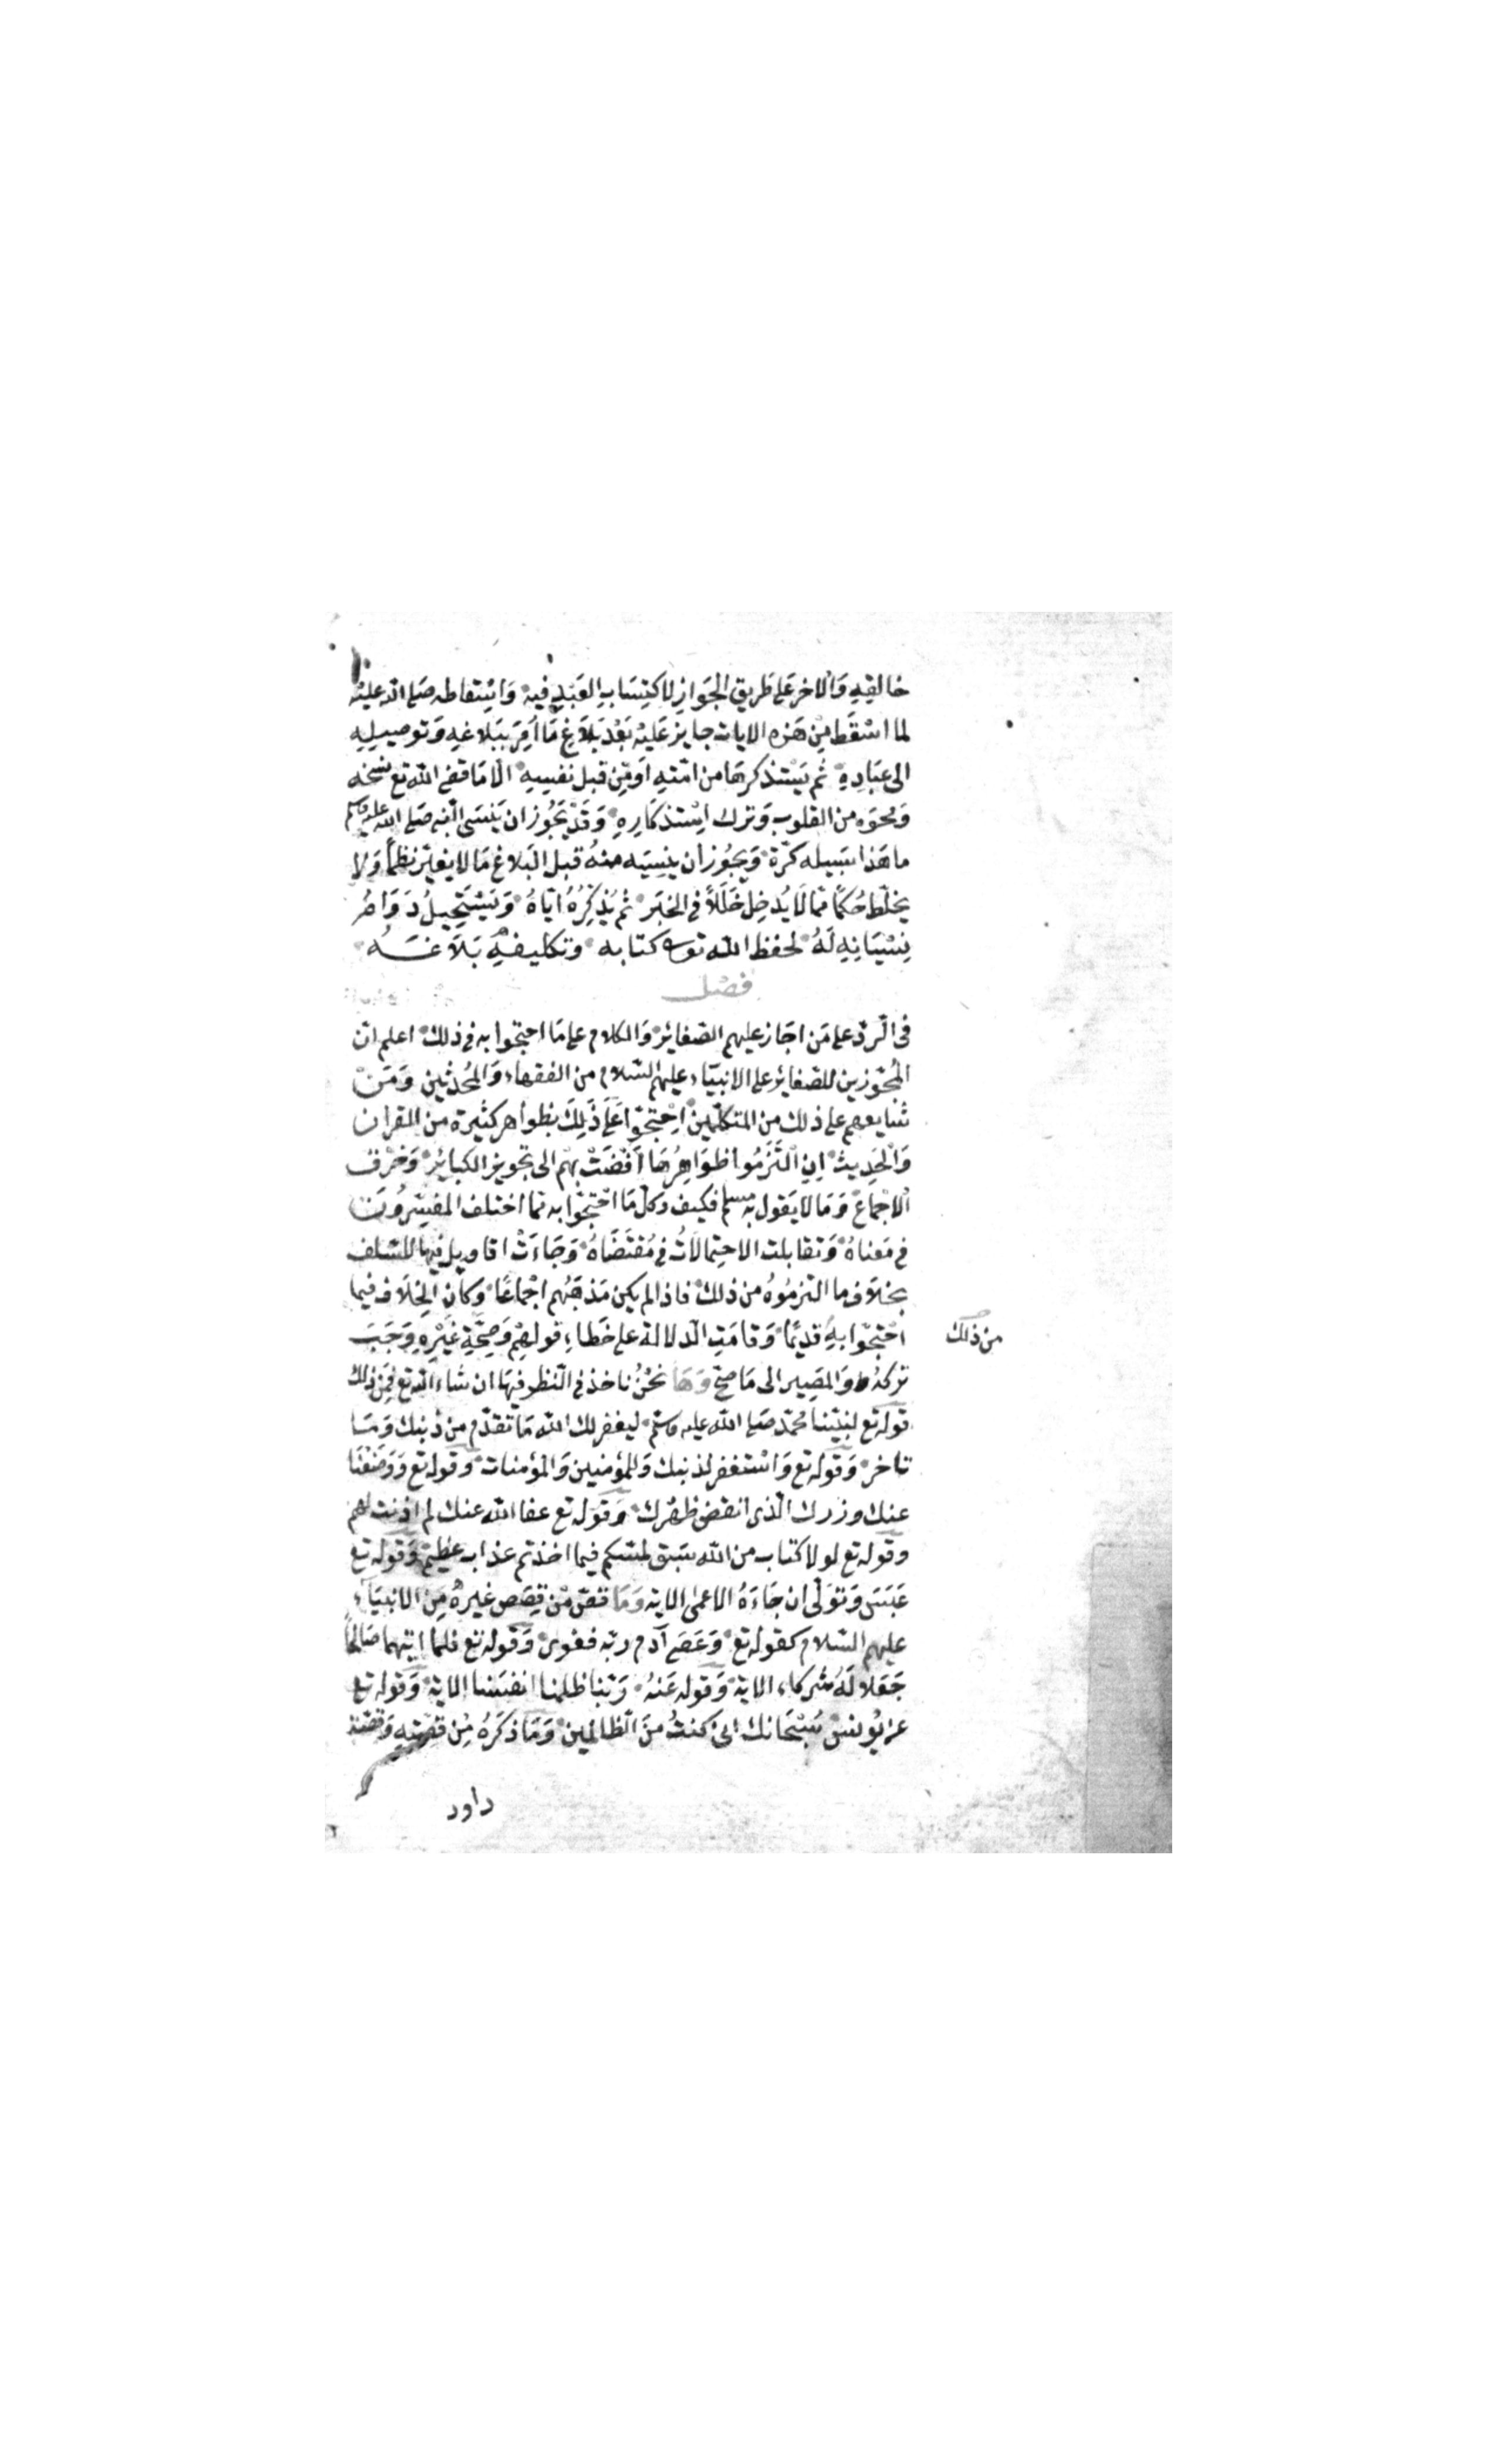 خالقيهِ وَالاخر عَلى طَريق الجَوازِ لاكتِسَابِ العَبْدِ فيه وَاسِتقاطه صَلى الله عليه
لما اسْقَط مِنْ هَذهِ الايات جايز عَلَيْه بَعْد بَلَاغ مَا اُمِرَ بِبَلاغهِ وَتوصيلِهِ
الى عبَادِهِ ثُم يَسْتذكرهَا من امّتهِ اوَمِن قبل نفسِهِ الّا مَا قضى الله تع نسخه
وَمُحوَه من القلوب وَترك اِسْتذكَارِهِ وَقَدْ يَجُوز ان يَنسَى النّبى صَلى الله عليه وسلم
ما هَذا سَبيله كرّة وَيجُوز ان ينسِيَه منهُ قبل البَلاغ مَا لا يغيّر نظماً وَلا
يخلّط حُكمًا ممّا لَا يُدخِل خَلَلاً فى الخبَر ثم يُذكِّرُهُ ايّاهُ وَيَسْتَحِيلُ دَوَامُ
نِسْيَانِهِ لَهُ لحفظ الله تع كتابه وتكليفهِ بَلَاغَهُ
فصْل
فى الّردّ على مَن اجَاز عليهم الصّغائر وَالكلام على مَا احتجّوا به فى ذلك اعلم انّ
المُجوّزين للصغائر على الانبيَاء عليهم السّلام من الفقهاء وَالمُحدثين وَمَنْ
شايعهم على ذلك من المتكلّمين اِحْتجّوا عَلَى ذَلِكَ بظواهر كثيرة من القران
وَالْحَدِيث اِنِ الْتَزَمُوا ظوَاهِرُهَا اَفْضَتْ بهْم الى تجويز الكبائر وَخرْق
الْاجْماع وَمَا لا يَقول به مسلم فكيف وكلّ مَا احْتجّوا به ممّا اختلف المفسّرُونَ
فى مَعناهُ وَتقابلت الاحتمِالاتُ فى مُقتضَاهُ وَجَاءَتْ اقاويل فيها للسّلف
بخلَاف ما التزمُوهُ من ذلك فاذا لم يكن مَذهَبُهم اجْماعًا وكان الخِلَاف فيما
احْتجّوا بهِ قديمًا وَقامَتِ الدّلالة على خَطاءِ قولهِمْ وَصِحّةِ غَيْرِهِ وَجَبَ
من ذلك
تركهُ وَالمصِير الى مَا صحّ وَهَا نحْنُ ناخذ فى النّظر فيهَا ان شاء الله تع فمِن ذلك
قوله تع لنبيّنا محمّد صَلى الله عليه وسلّم ليغفر لك الله مَا تقدّم من ذنبك وَمَا
تاخر وَقوله تع وَاسْتغفر لذنبك وَللمؤمنين وَالمؤمنات وقوله تع وَوَضَعْنَا
عنك وزرك الّذى انقض ظهْرك وَقوله تع عفا الله عنك لم اذنت لهم
وقوله تع لولا كتاب من الله سَبق لمسّكم فيما اخذتم عذاب عظيم وَقوله تع
عَبَسَ وَتوَلّى ان جَاءَهُ الاعمى الاية وَمَا قصّ مْن قِصَص غيرهْ مِن الانبيَاء
عليهم السّلام كقوله تع وَعَصَى آدم ربّه فغوى وَقوله تع فلما اتيهما صَالحًا
جَعَلا لَهُ شركاء الاية وَقوله عَنهُ رَبّنا ظلمنا انفسَنا الاية وَقوله تع
عن يُونسْ سُبْحَانك انى كنتُ مِنَ الظالمين وَمَا ذكرَهُ مِن قصّتهِ وَقصّة
داود